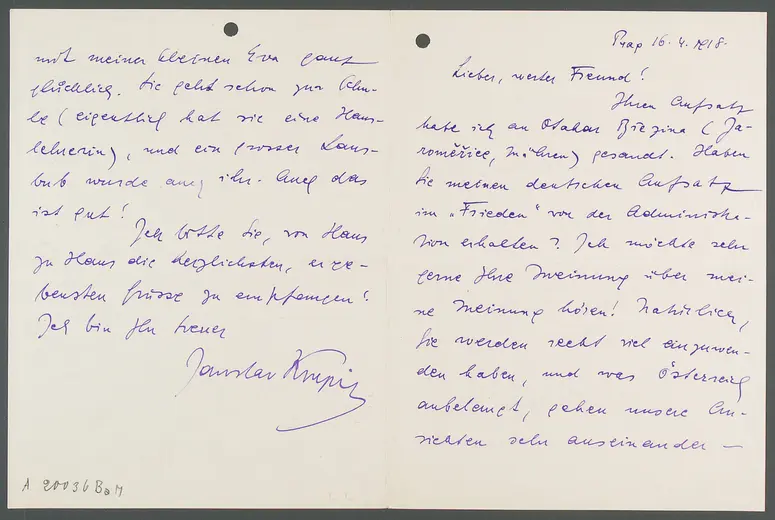 Prag 16. 4. 1918.
Lieber, werter Freund!
Ihren Aufsatz
habe ich an Otakar Březina (Ja-
roměřice, Mähren) gesandt. Haben
Sie meinen deutschen Aufsatz
im „Frieden" von der Administra-
tion erhalten? Ich möchte sehr
gerne Ihre Meinung über mei-
ne Meinung hören! Natürlich,
Sie werden recht viel einzuwen-
den haben, und was Österreich
anbelangt, gehen unsere An-
sichten sehr auseinander —
mit meiner kleinen Eva ganz
glücklich. Sie geht schon zur Schu-
le (eigentlich hat sie eine Haus-
lehrerin), und ein grosser Laus-
bub wurde aus ihr. Auch das
ist gut!
Ich bitte Sie, von Haus
zu Haus die herzlichsten, erge-
bensten Grüsse zu empfangen!
Ich bin Ihr treuer
Jaroslav
A 20036 BaM